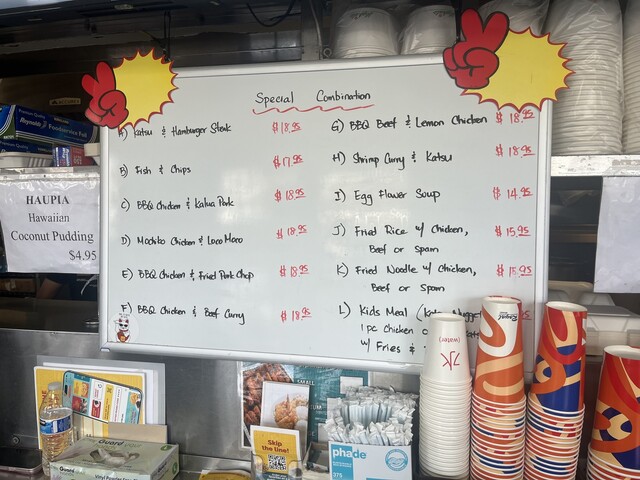 Special Combination
A) Katsu & Hamburger Steak $18.95
B) Fish & Chips $17.95
C) BBQ Chicken & Kalua Pork $18.95
D) Mochiko Chicken & Loco Moco $18.95
E) BBQ Chicken & Fried Pork Chop $18.95
F) BBQ Chicken & Beef Curry $18.95
G) BBQ Beef & Lemon Chicken $18.95
H) Shrimp Curry & Katsu $18.95
I) Egg Flower Soup $14.95
J) Fried Rice w/ Chicken, $15.95
Beef or Spam
K) Fried Noodle w/ Chicken, $15.95
Beef or Spam
L) Kids Meal
1 pc Chicken
w/ Fries &
HAUPIA
Hawaiian
Coconut Pudding
$4.95
Reynolds
7K
(water)
Skip
the Line!
phade
375
Guard
Guard